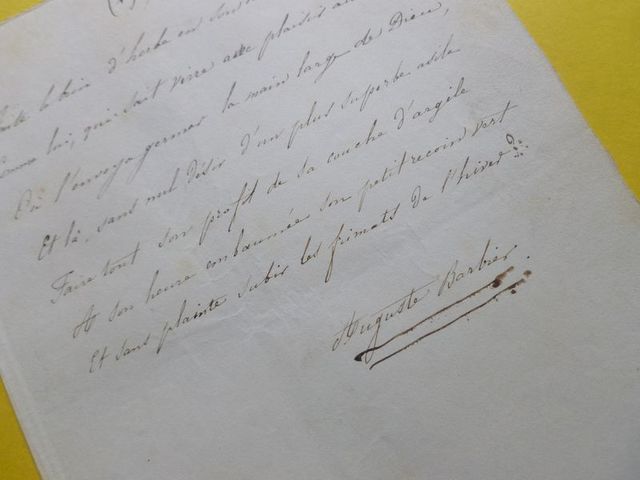 le brin d'herbe en son
Comme lui, qui sait vivre avec plaisir au
Où l'envoya germer la main large de Dieu,
Et là, sans nul désir d'un plus superbe asile
Faire tout son profit de sa couche d'argile
A son heure embaumée son petit recoin vert
Et sans plainte subir les frimats de l'hiver.
Auguste Barbier.